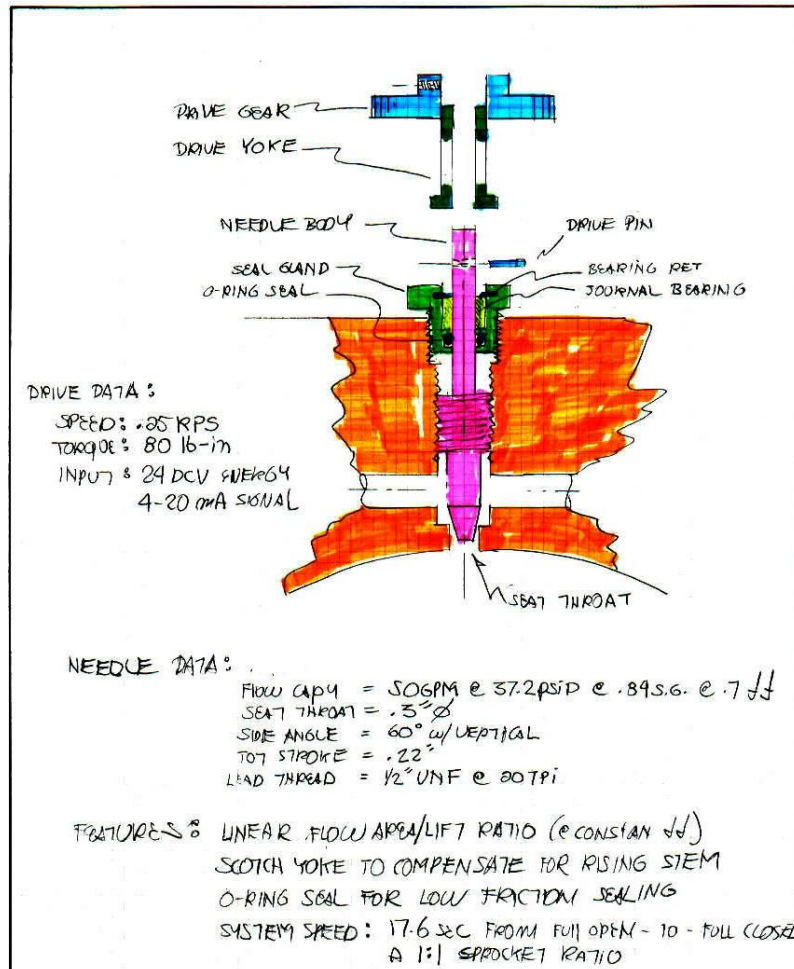 DRIVE GEAR
DRIVE YOKE
NEEDLE BODY
DRIVE PIN
SEAL GLAND
BEARING RET
O-RING SEAL
JOURNAL BEARING
DRIVE DATA:
SPEED: .25 RPS
TORQUE: 80 lb-in
INPUT: 24 DCV ENERGY
4-20 mA SIGNAL
SEAT THROAT
NEEDLE DATA:
FLOW CAPY = 50GPM @ 37.2PSID @ .89S.G. @ .7 ff
SEAT THROAT = .3"Ø
SIDE ANGLE = 60° W/VERTICAL
TOT STROKE = .22"
LEAD THREAD = 1/2" UNF @ 20TPi
FEATURES: LINEAR FLOW AREA/LIFT RATIO (@ CONSTAN ff)
SCOTCH YOKE TO COMPENSATE FOR RISING STEM
O-RING SEAL FOR LOW FRICTION SEALING
SYSTEM SPEED: 17.6 SEC FROM FULL OPEN - TO - FULL CLOSED
A 1:1 SPROCKET RATIO